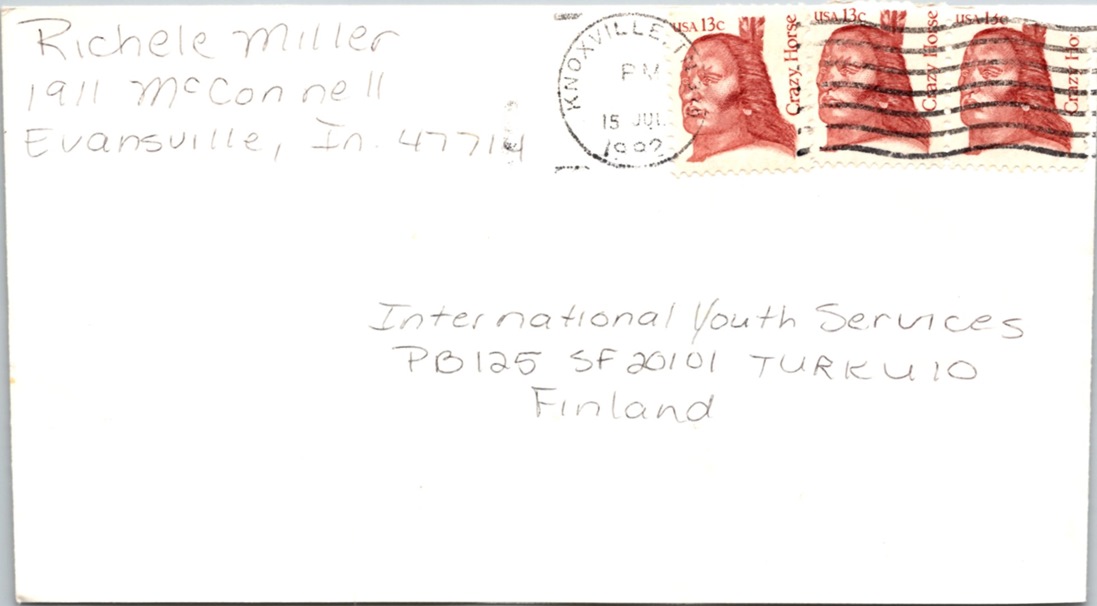 Richele Miller
1911 McConnell
Evansville, In. 47714
KNOXVILLE, T
PM
15 JUL
1992
USA 13c
Crazy Horse
USA 13c
Crazy Horse
USA 13c
Crazy Ho
International Youth Services
PB125 SF20101 TURKU10
Finland